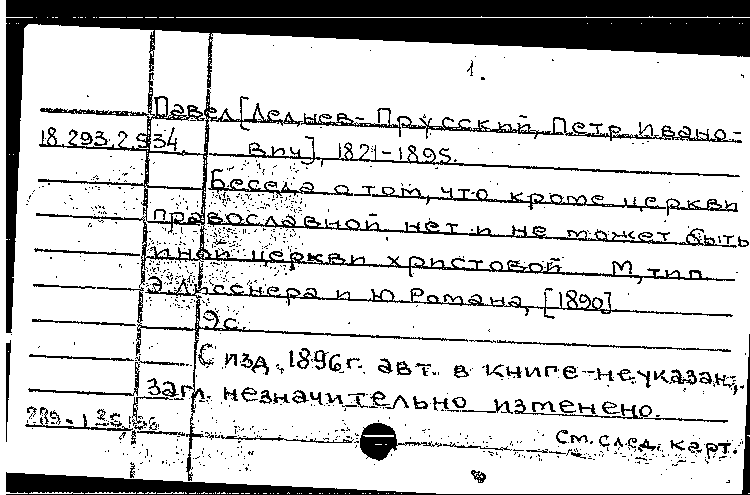 1.
Павел [Леднев-Прусский, Петр Ивано-
18.293.2.534. вич], 1821-1895.
Беседа о том, что кроме церкви
православной нет и не может быть
иной церкви христовой. М, тип.
Э. Лисснера и Ю Романа, [1890]
9с.
С изд. 1896г. авт. в книге не указан,
загл. незначительно изменено.
См. след. карт.